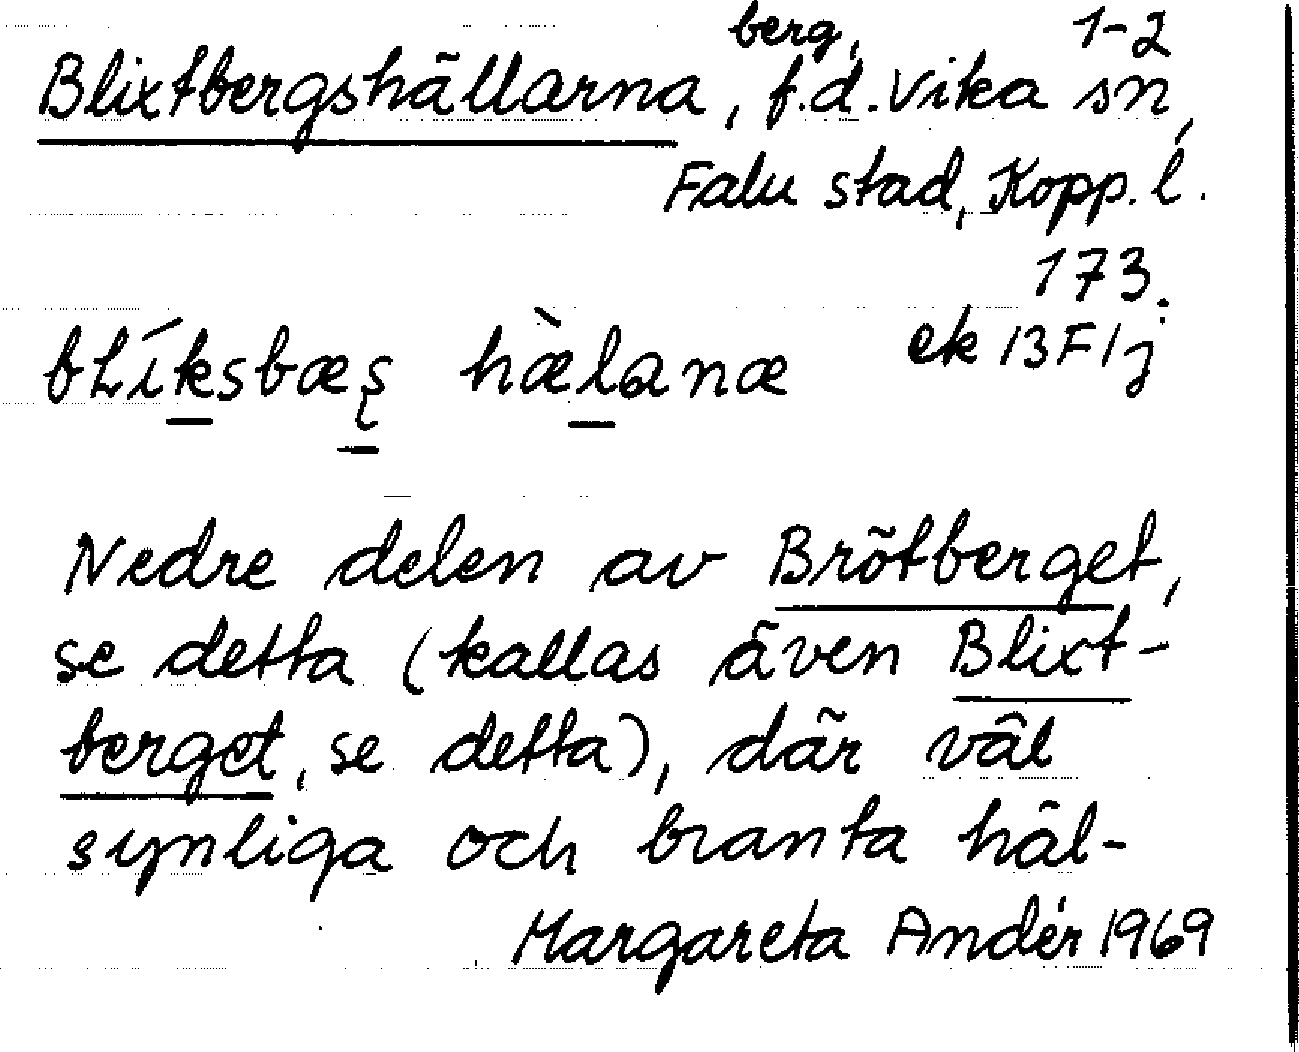 berg, 1-2
Blixtbergshällarna, f.d. Vika sn,
Falu stad, Kopp. l.
173.
blíksbæș hælanæ ek 13F1j
Nedre delen av Brötberget,
se detta (kallas även Blixt-
berget, se detta), där väl
synliga och branta häl-
Margareta Andér 1969